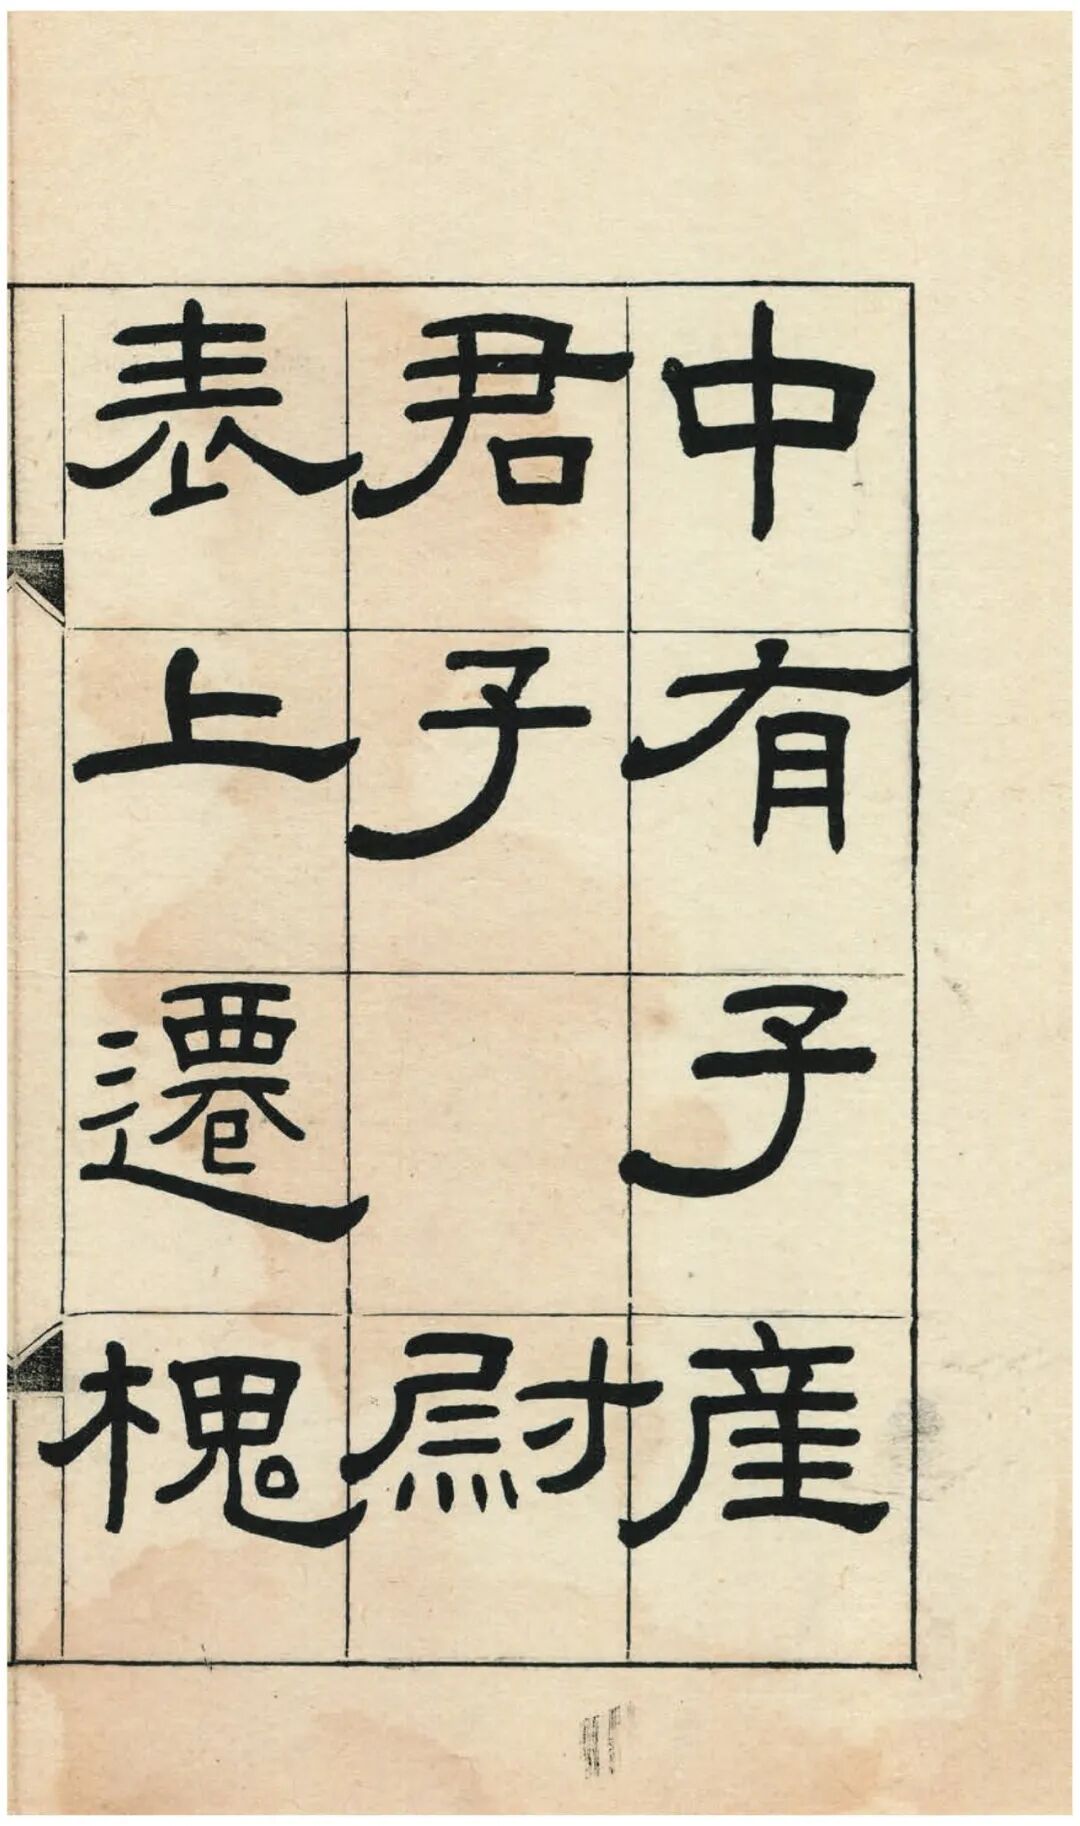 中有子產
君子尉
表上遷槐